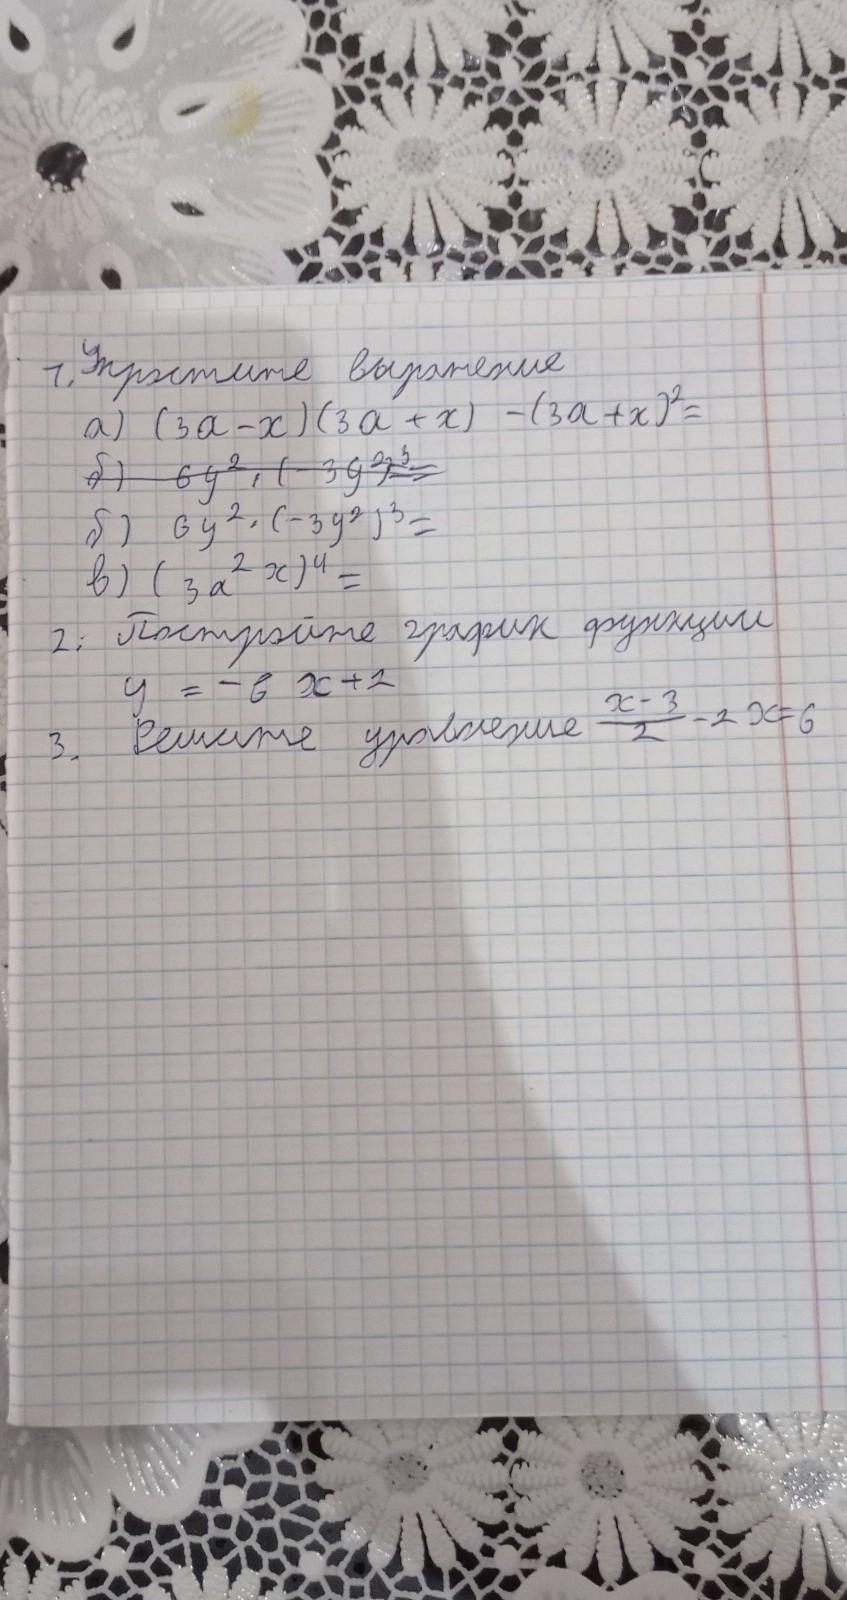 1. Упростите выражение
а) (3a-x)(3a+x) -(3a+x)²=
б) 6y²·(-3y²)³=
б) 6y²·(-3y²)³=
в) (3a²x)⁴=
2. Постройте график функции
y = -6 x+2
3. Решите уравнение \frac{x-3}{2} -2x=6